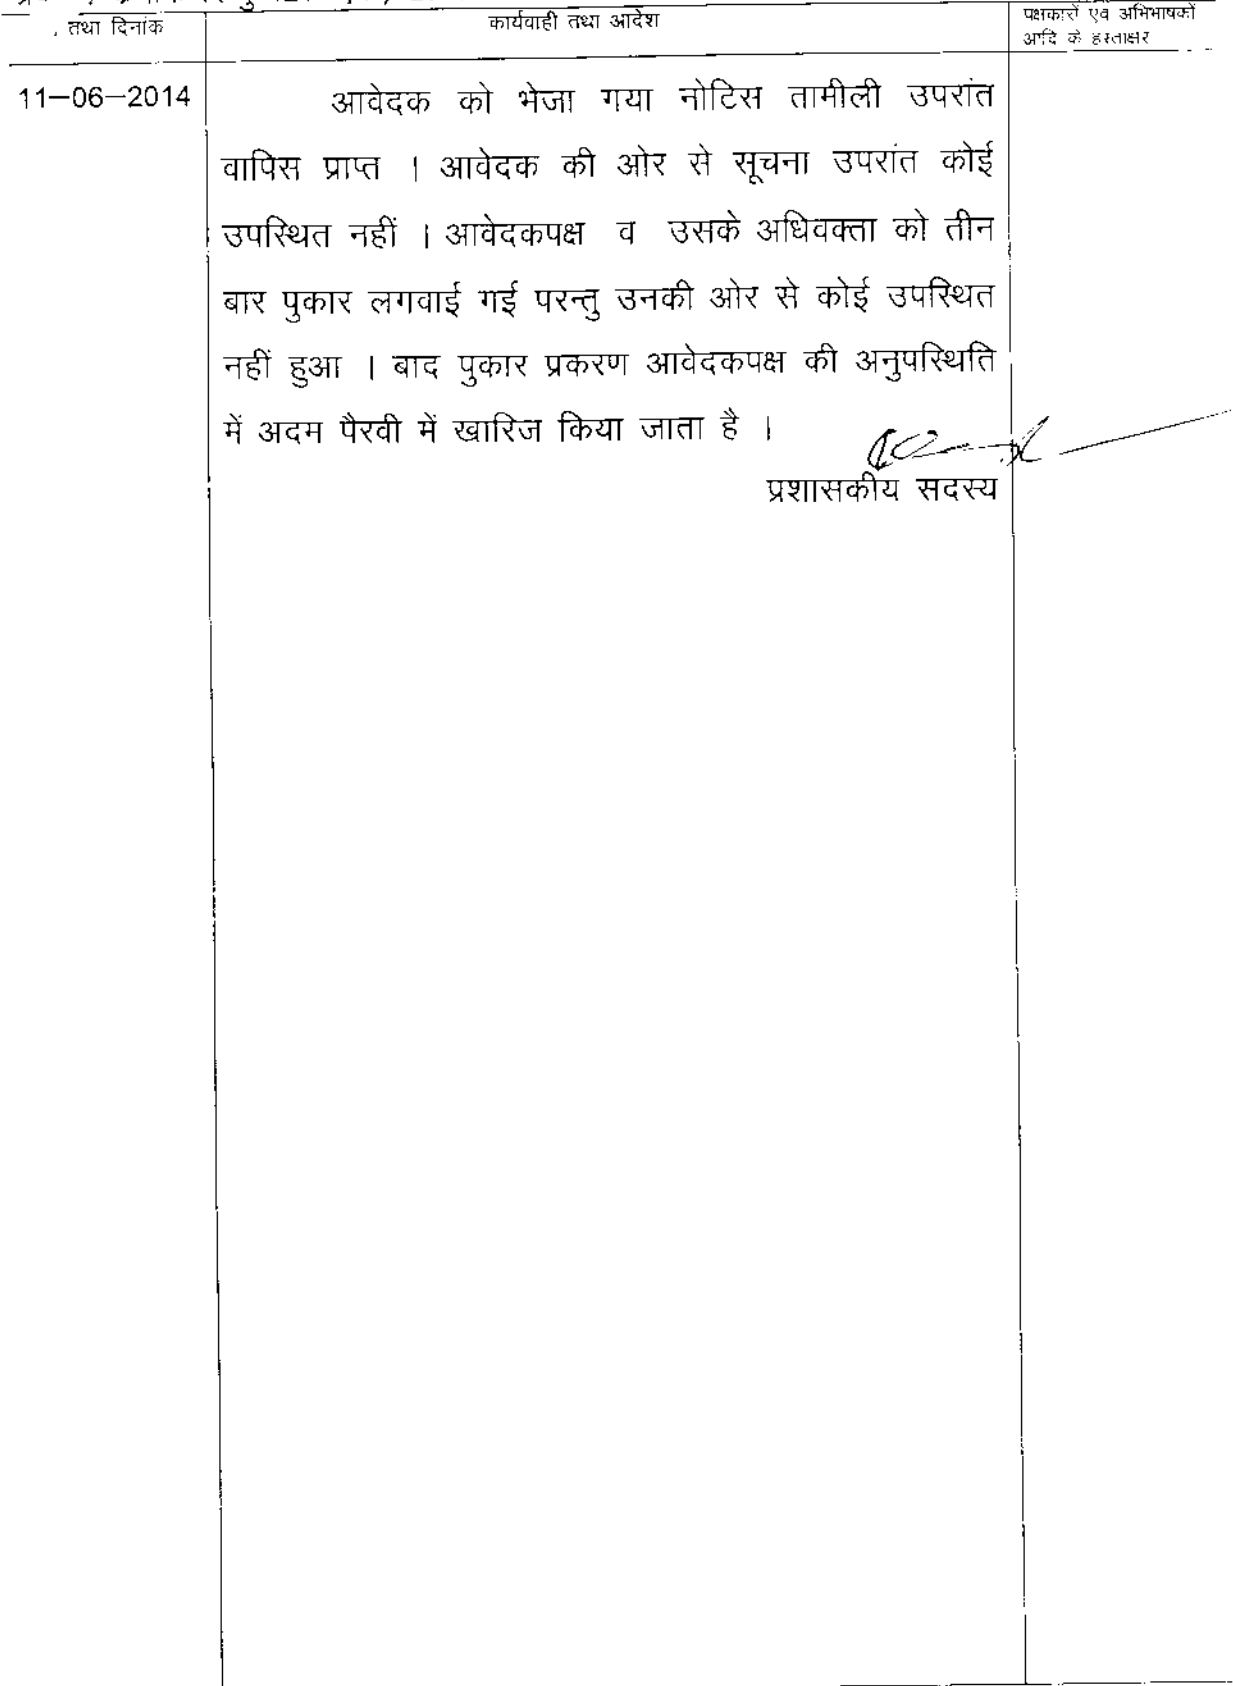 तथा दिनांक
कार्यवाही तथा आदेश
पक्षकारों एवं अभिभाषकों
आदि के हस्ताक्षर
11–06–2014
आवेदक को भेजा गया नोटिस तामीली उपरांत
वापिस प्राप्त । आवेदक की ओर से सूचना उपरांत कोई
उपस्थित नहीं । आवेदकपक्ष व उसके अधिवक्ता को तीन
बार पुकार लगवाई गई परन्तु उनकी ओर से कोई उपस्थित
नहीं हुआ । बाद पुकार प्रकरण आवेदकपक्ष की अनुपस्थिति
में अदम पैरवी में खारिज किया जाता है ।
प्रशासकीय सदस्य